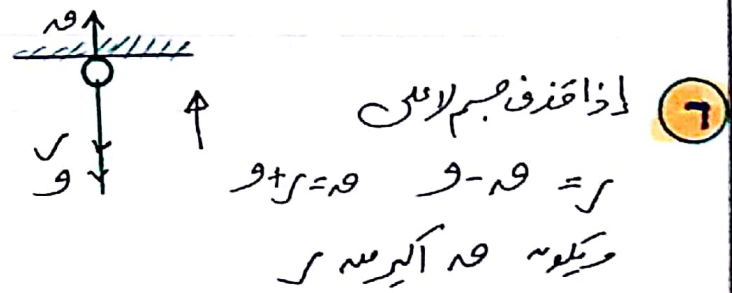 ٦ إذا قذف جسم لاعلى
ر = ق - و    ق = ر + و
ويكون ق أكبر من ر
ق
ر
و